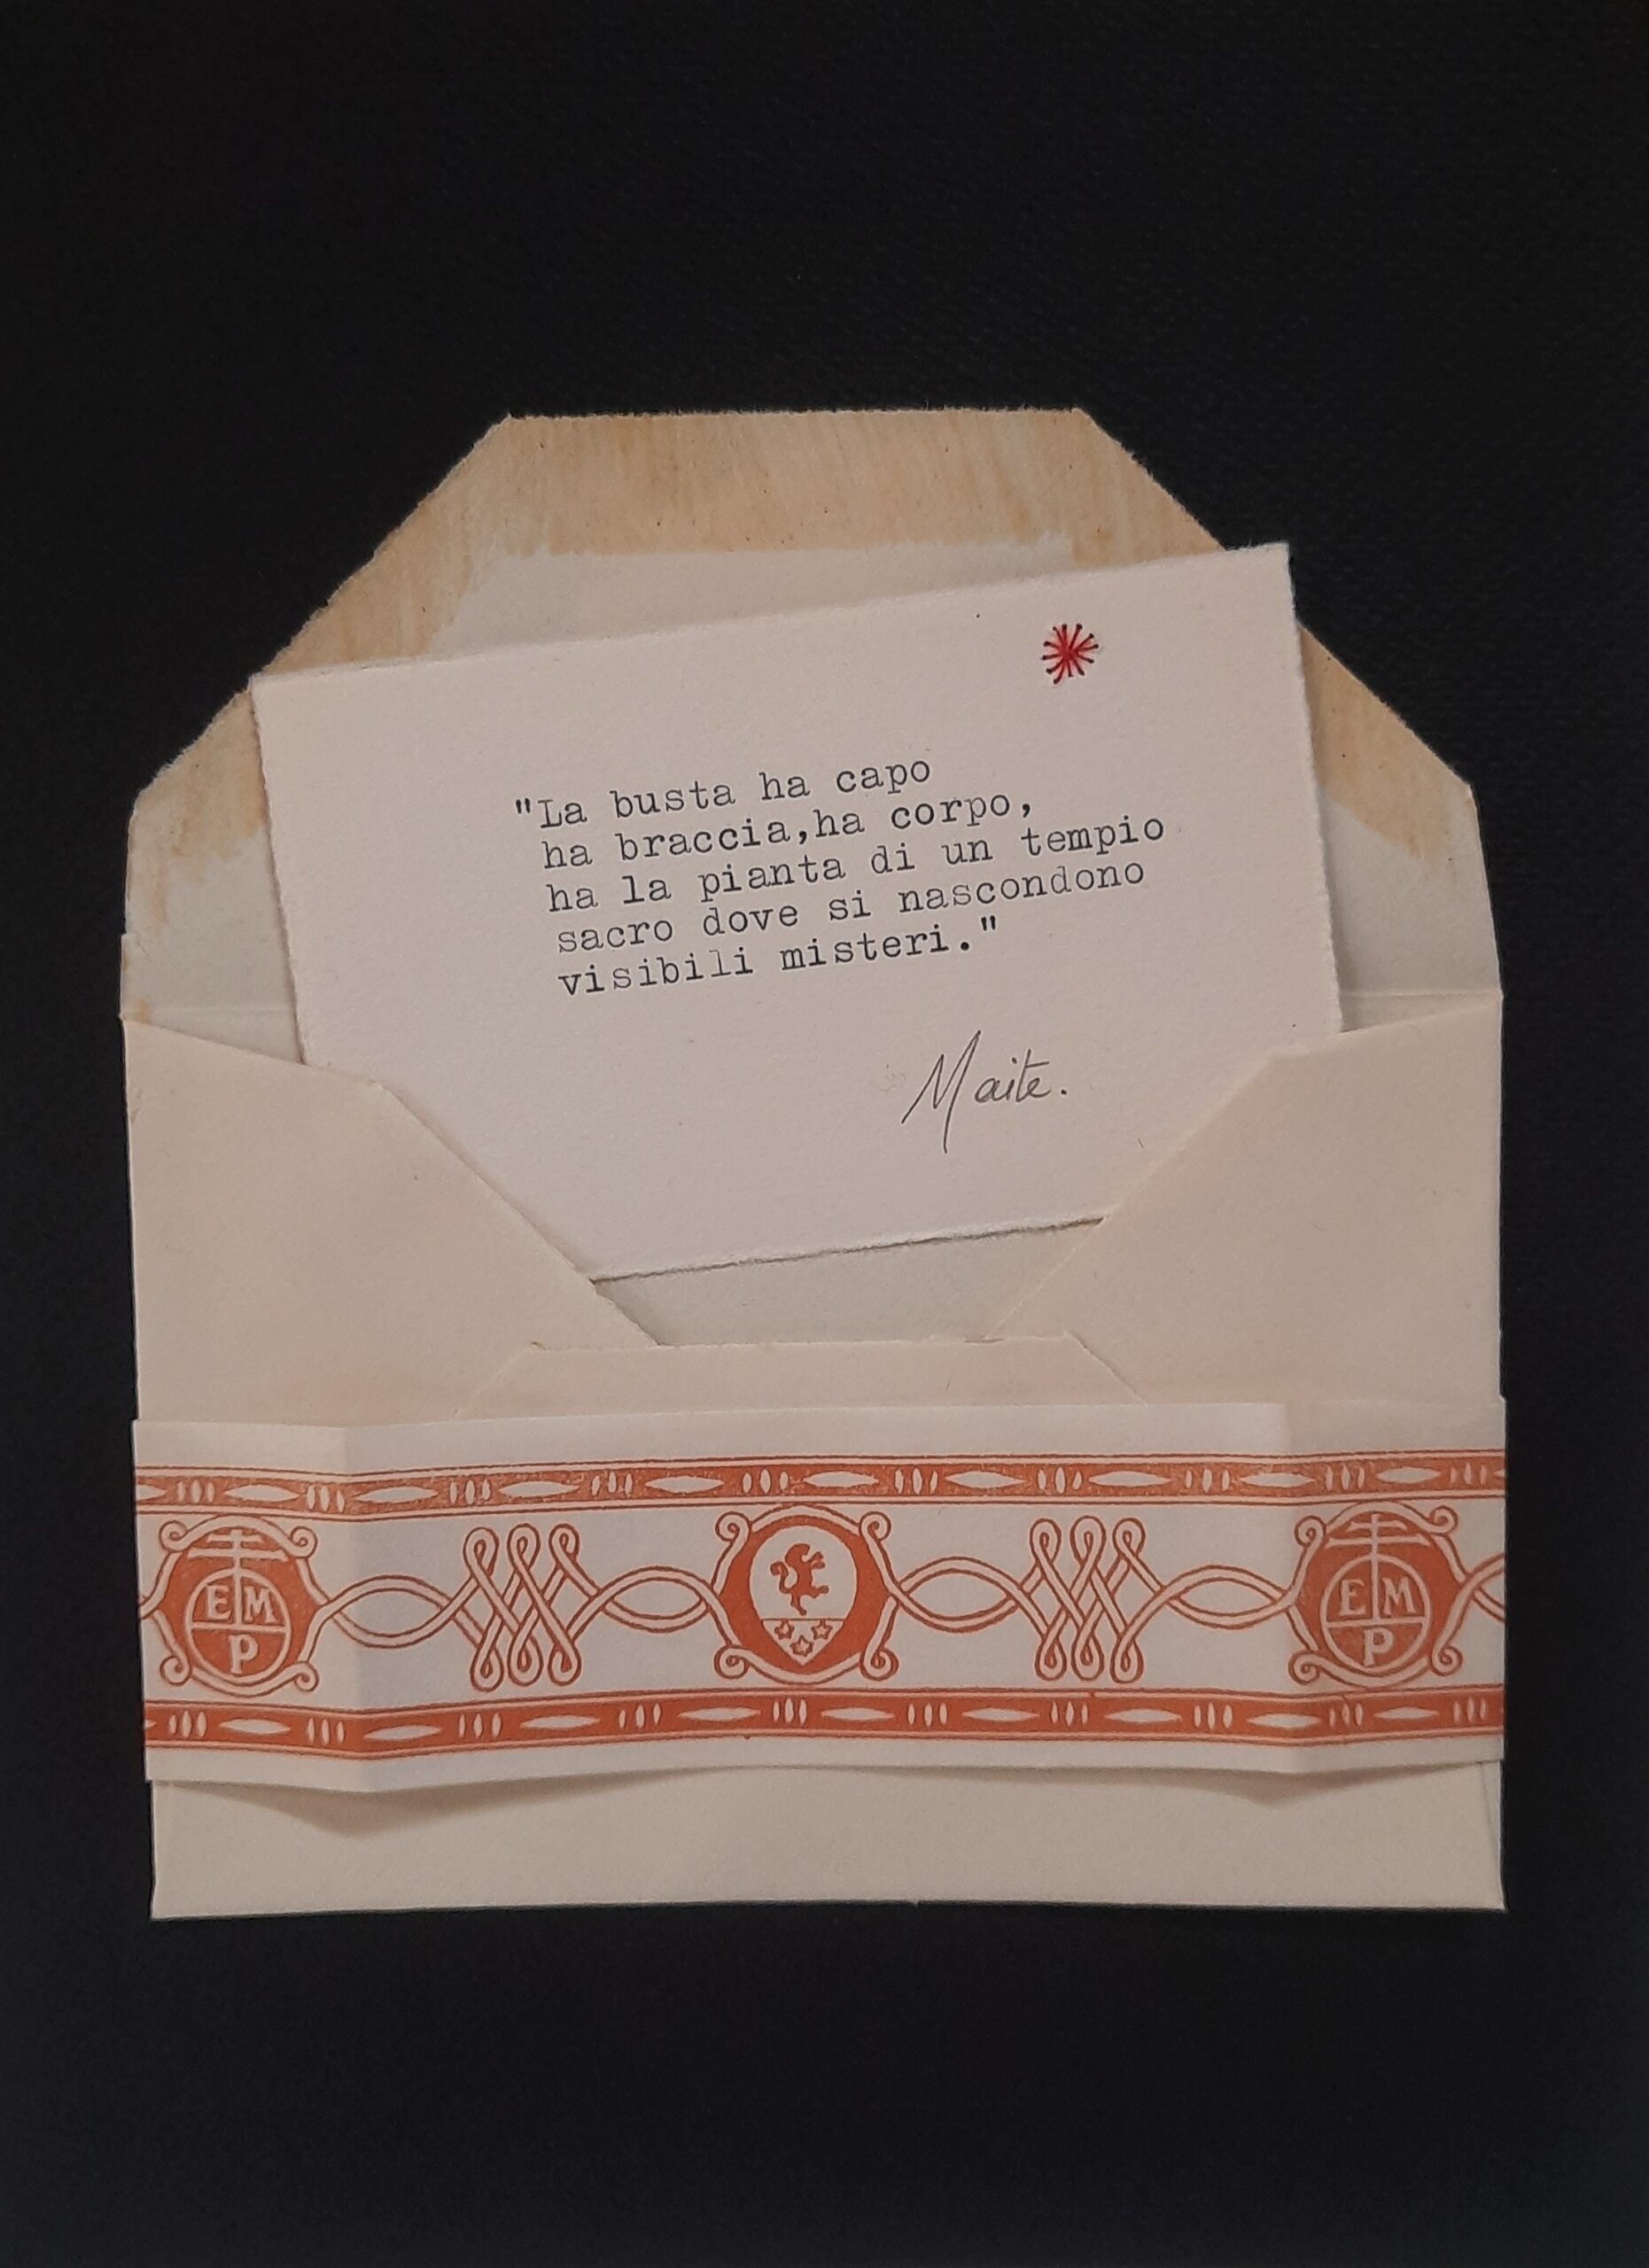 "La busta ha capo
ha braccia,ha corpo,
ha la pianta di un tempio
sacro dove si nascondono
visibili misteri."
Maite.
E M
P
E M
P